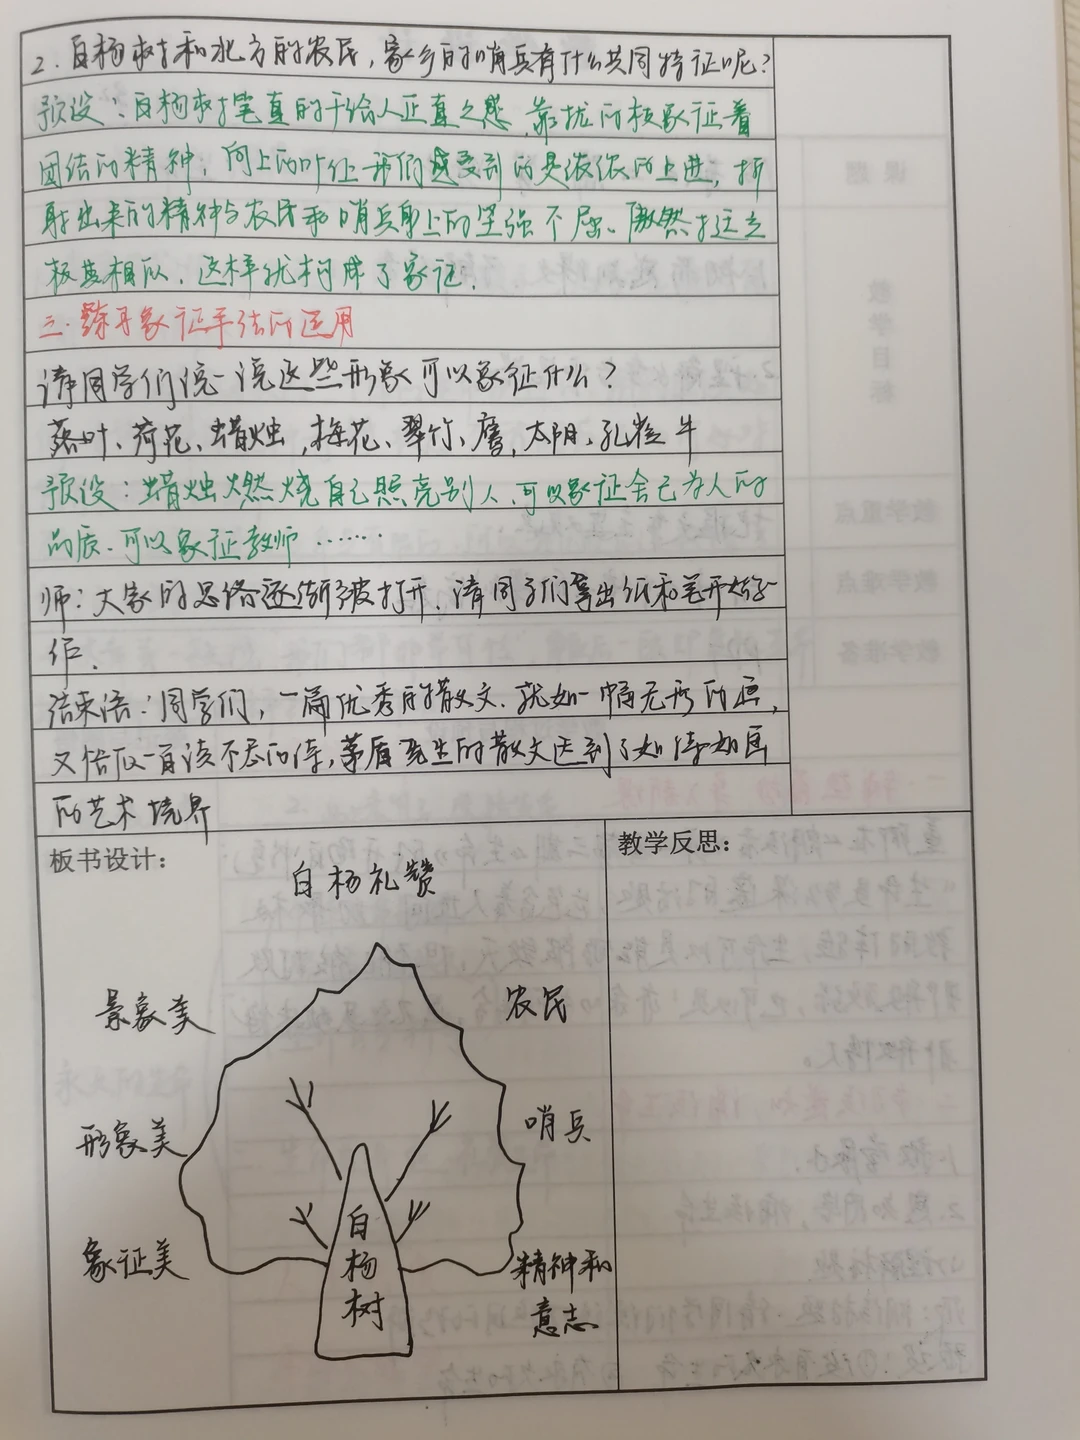 2.白杨树和北方的农民,家乡的哨兵有什么共同特征呢?
预设:白杨树笔直的干给人正直之感,靠拢的枝象征着
团结的精神;向上的叶让我们感受到的是浓浓的上进,折
射出来的精神与农民和哨兵身上的坚强不屈、傲然挺立
极其相似,这样就构成了象征.
三.练习象征手法的运用
请同学们说一说这些形象可以象征什么?
落叶、荷花、蜡烛,梅花、翠竹、鹰,太阳、孔雀、牛
预设:蜡烛燃烧自己照亮别人,可以象征舍己为人的
品质、可以象征教师……
师:大家的思路逐渐被打开,请同学们拿出纸和笔开始写
作.
结束语:同学们,一篇优秀的散文、就如一幅无形的画,
又恰似一首读不尽的诗,茅盾先生的散文达到了如诗如画
的艺术境界
板书设计:
教学反思:
白杨礼赞
景象美
农民
形象美
哨兵
象征美
白杨树
精神和
意志
课题
教学目标
教学重点
教学难点
教学准备